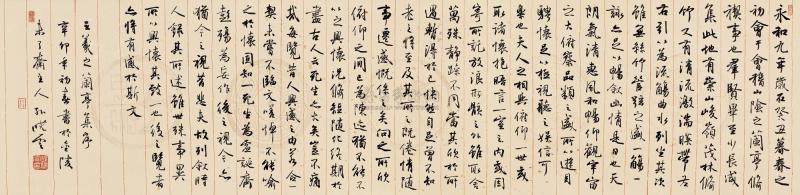 永和九年歲在癸丑暮春之
初會于會稽山陰之蘭亭脩
禊事也群賢畢至少長咸
集此地有崇山峻嶺茂林脩
竹又有清流激湍暎帶左
右引以為流觴曲水列坐其次
雖無絲竹管弦之盛一觴一
詠亦足以暢叙幽情是日也天
朗氣清惠風和暢仰觀宇宙
之大俯察品類之盛所以遊目
騁懷足以極視聽之娛信可
樂也夫人之相與俯仰一世或
取諸懷抱晤言一室之內或因
寄所託放浪形骸之外雖取舍
萬殊靜躁不同當其欣於所
遇暫得於己怏然自足曾不知
老之將至及其所之既倦情隨
事遷感慨係之矣向之所欣
俯仰之間已為陳迹猶不能不
以之興懷況脩短隨化終期於
盡古人云死生亦大矣豈不痛
哉每覽昔人興感之由若合一
契未嘗不臨文嗟悼不能喻
之於懷固知一死生為虛誕齊
彭殤為妄作後之視今亦
猶今之視昔悲夫故列叙時
人錄其所述雖世殊事異
所以興懷其致一也後之覽者
亦將有感於斯文
王羲之蘭亭集序
辛卯年初春書於金陵
未了齋主人孙晓云